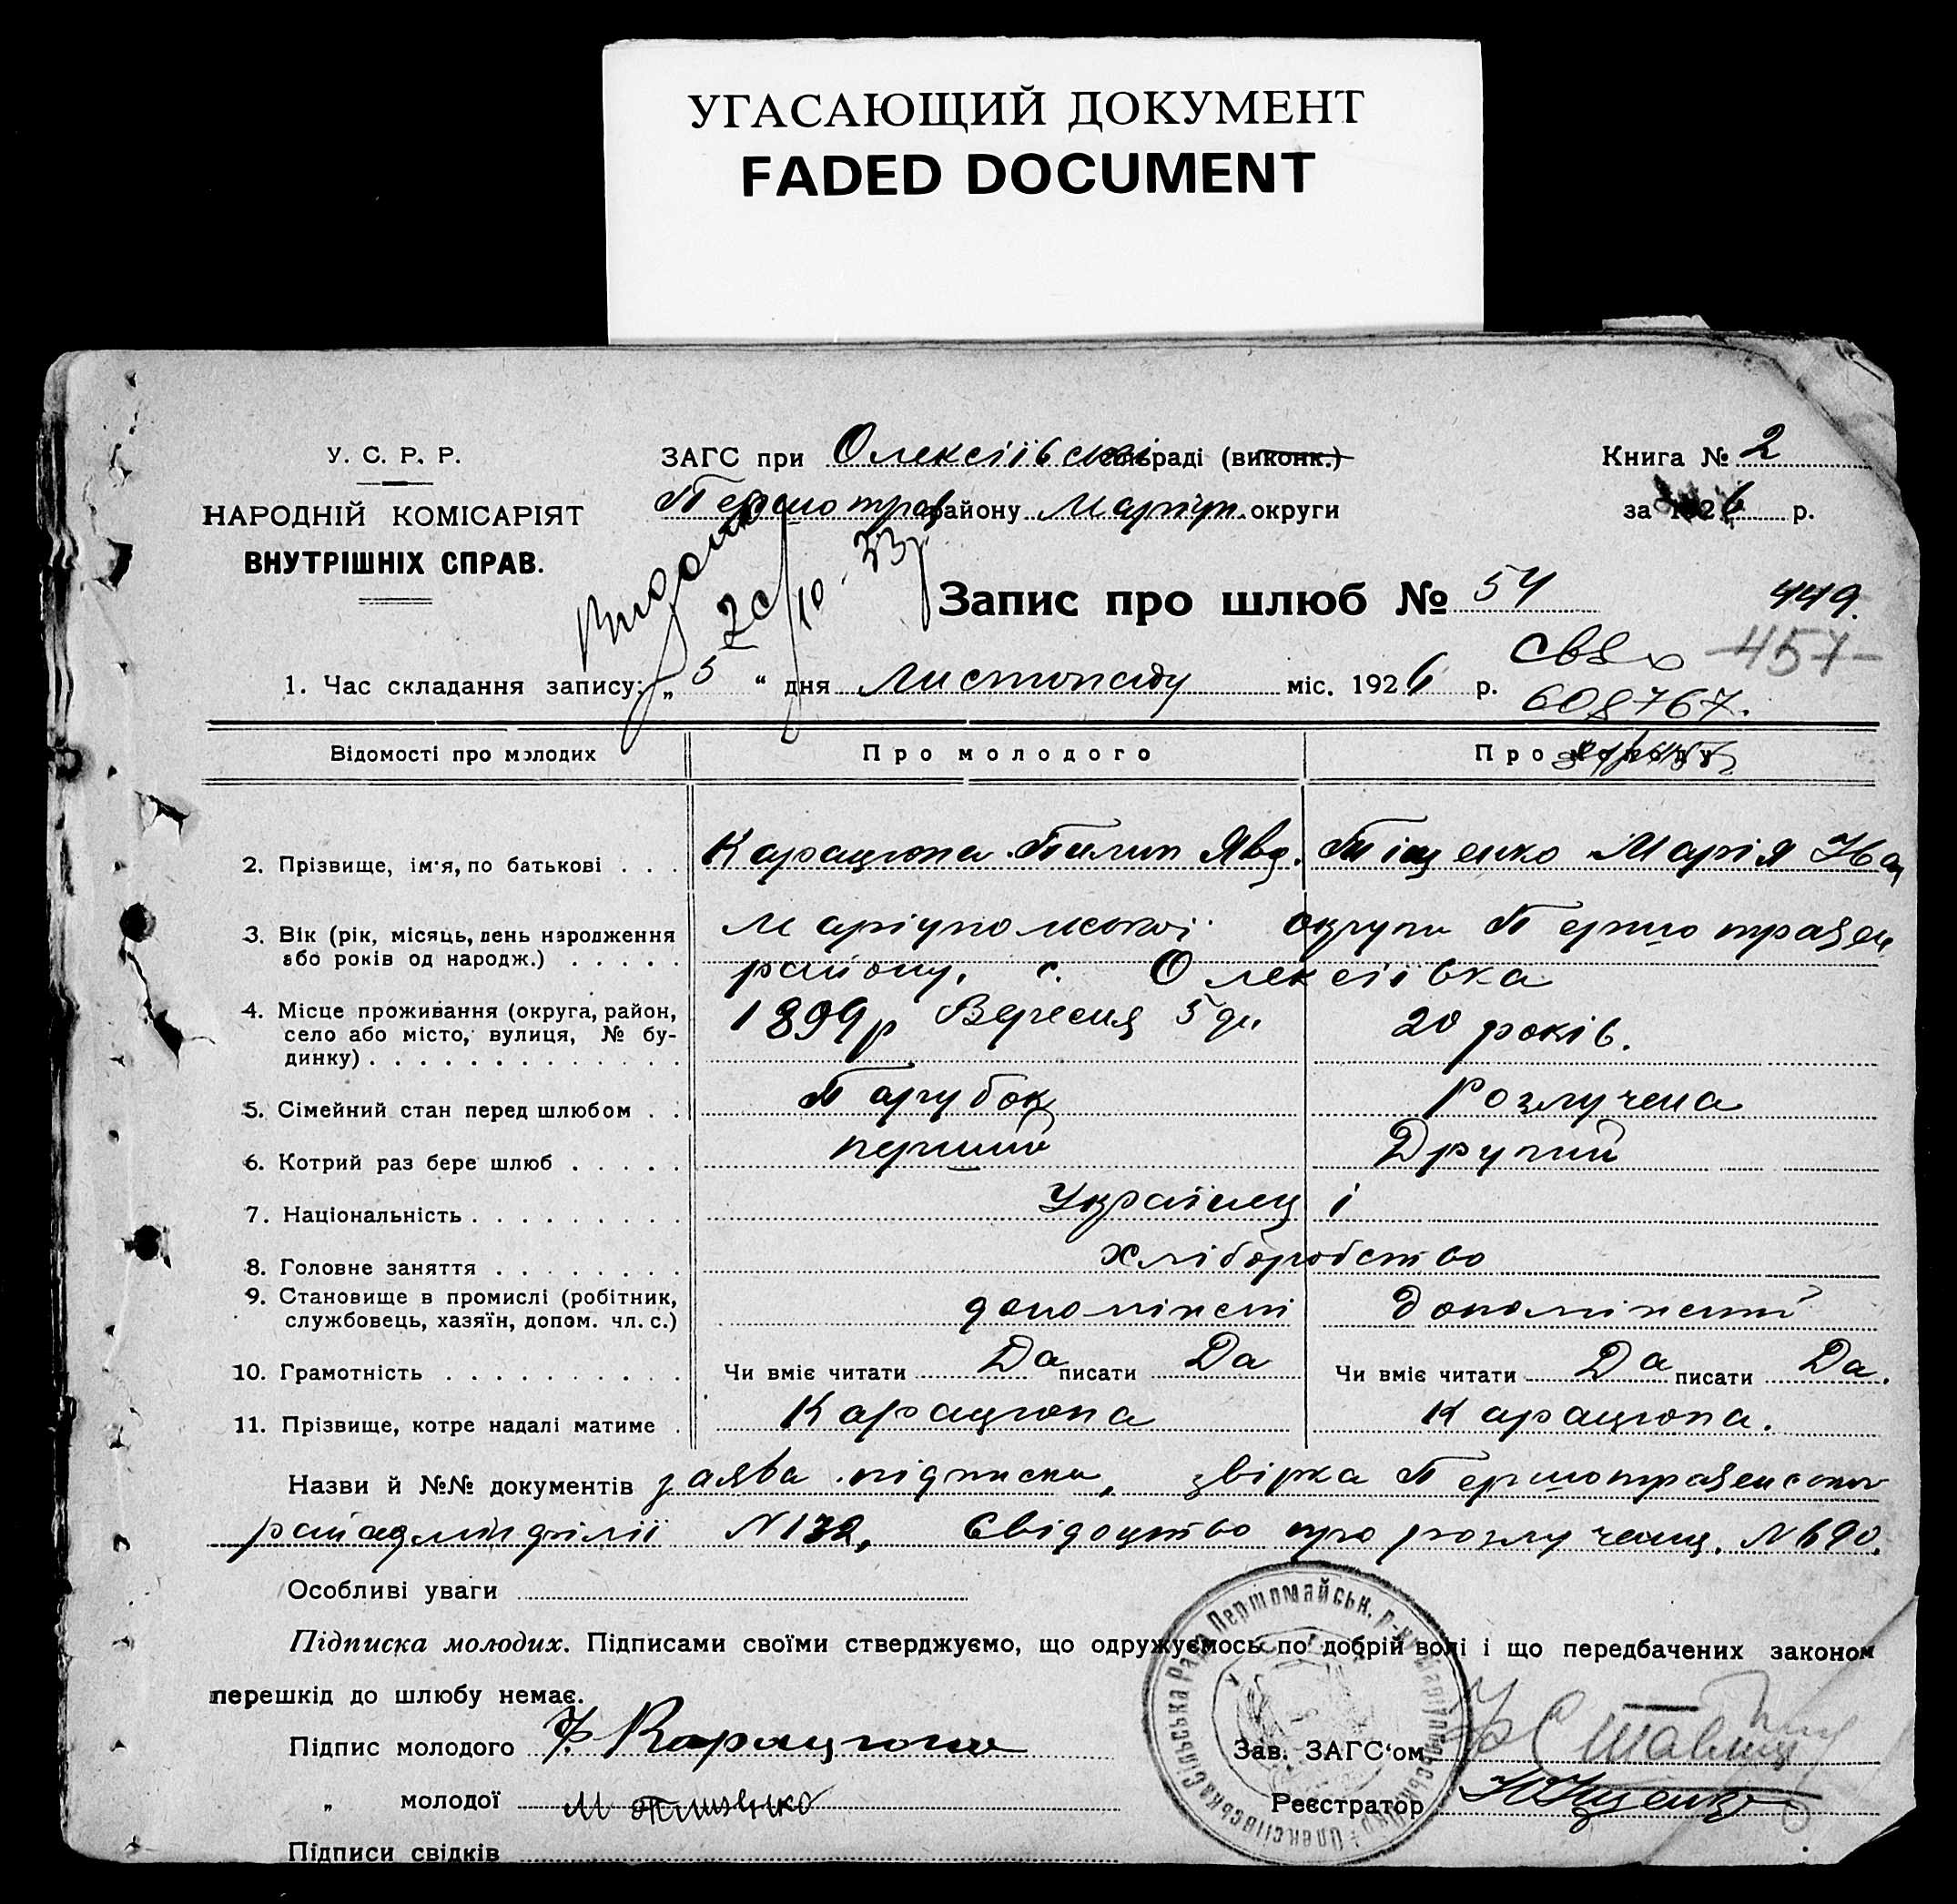 УГАСАЮЩИЙ ДОКУМЕНТ
FADED DOCUMENT
У. С. Р. Р.
НАРОДНІЙ КОМІСАРІЯТ
ВНУТРІШНІХ СПРАВ.
ЗАГС при Олексіївськ сільраді (виконк.)
Першотрав району Маріуп. округи
Книга № 2
за 1926 р.
20/10-33р
Запис про шлюб № 54
449.
457
1. Час складання запису: „ 5 “ дня Листопаду міс. 1926 р.
608767.
Відомості про молодих
Про молодого
Про молоду
2. Прізвище, ім'я, по батькові . . . Карацюпа Пилип Явд. Тіщенко Марія Іва
3. Вік (рік, місяць, день народження
або років од народж.) . . . . .
Маріупольської округи Першотравен
району, с. Олексіївка
4. Місце проживання (округа, район,
село або місто, вулиця, № бу-
динку) . . . . . . . . . . . . .
1899р Вересня 5 дн 20 років.
5. Сімейний стан перед шлюбом . . Парубок Розлучена
6. Котрий раз бере шлюб . . . . . перший Другий
7. Національність . . . . . . . . . Українці
8. Головне заняття . . . . . . . . Хліборобство
9. Становище в промислі (робітник,
службовець, хазяїн, допом. чл. с.)
10. Грамотність . . . . . . . . . . Чи вміє читати Да писати Да Чи вміє читати Да писати Да.
11. Прізвище, котре надалі матиме . Карацюпа Карацюпа.
Назви й №№ документів заява підписки, звірка Першотравенської
райадмінфілії N 132, Свідоцтво про розлученн. N 690.
Особливі уваги
Підписка молодих. Підписами своїми стверджуємо, що одружуємось по добрій волі і що передбачених законом
перешкід до шлюбу немає.
Підпис молодого Ф. Карацюпа
„ молодої М Тишенко
Зав. ЗАГС'ом
Реєстратор
Підписи свідків
Олексіївська Сільська Рада Першомайськ. р-ну Маріупільськ. Окр.